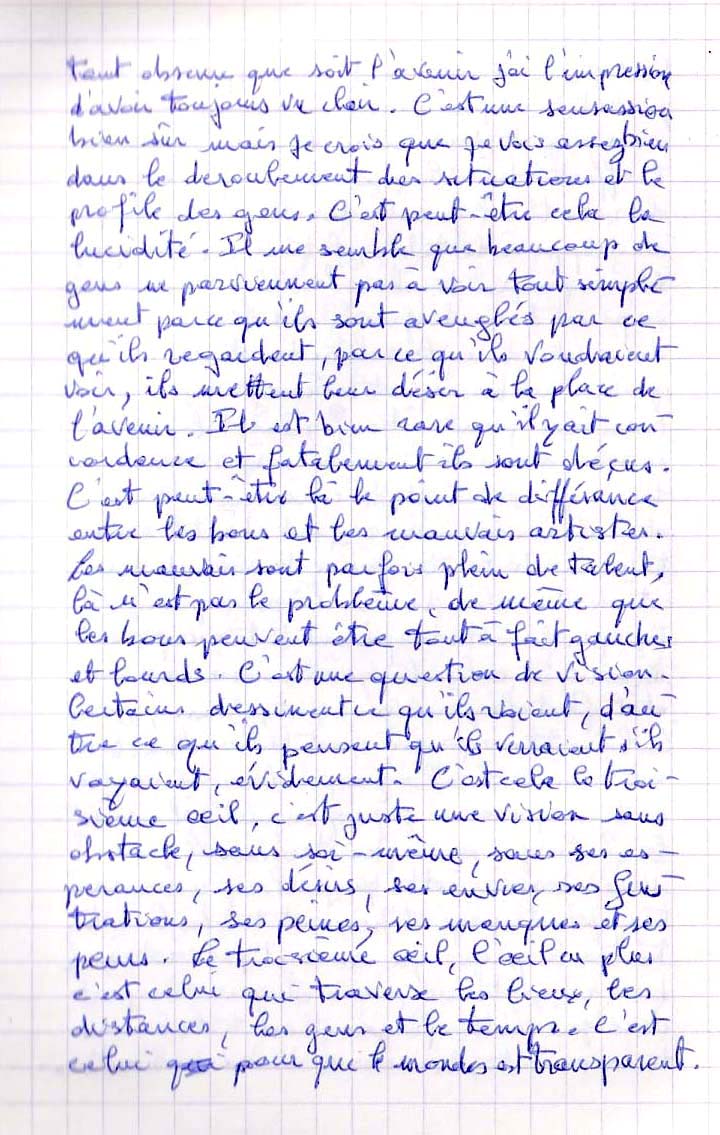 tout obscur que soit l'avenir j'ai l'impression
d'avoir toujours vu clair. C'est une sensassion
bien sûr mais je crois que je vois assez bien
dans le deroulement des situations et le
profile des gens. C'est peut-être cela la
lucidité. Il me semble que beaucoup de
gens ne parviennent pas à voir tout simple
ment parce qu'ils sont aveuglés par ce
qu'ils regardent, par ce qu'ils voudraient
voir, ils mettent leur désir à la place de
l'avenir. Il est bien rare qu'il y ait con-
cordance et fatalement ils sont déçus.
C'est peut-être là le point de différance
entre les bons et les mauvais artistes.
Les mauvais sont parfois plein de talent,
là n'est pas le problème, de même que
les bons peuvent être tout à fait gauches
et lourds. C'est une question de vision.
Certains dessinent ce qu'ils voient, d'au-
tre ce qu'ils pensent qu'ils verraient s'ils
voyaient, évidement. C'est cela le troi-
sième oeil, c'est juste une vision sans
obstacle, sans soi-même, sans ses es-
perances, ses désirs, ses envies, ses frus-
trations, ses peines, ses manques et ses
peurs. Le troisième oeil, l'oeil en plus
c'est celui qui traverse les lieux, les
distances, les gens et le temps. C'est
celui pour que le mondes est transparent.